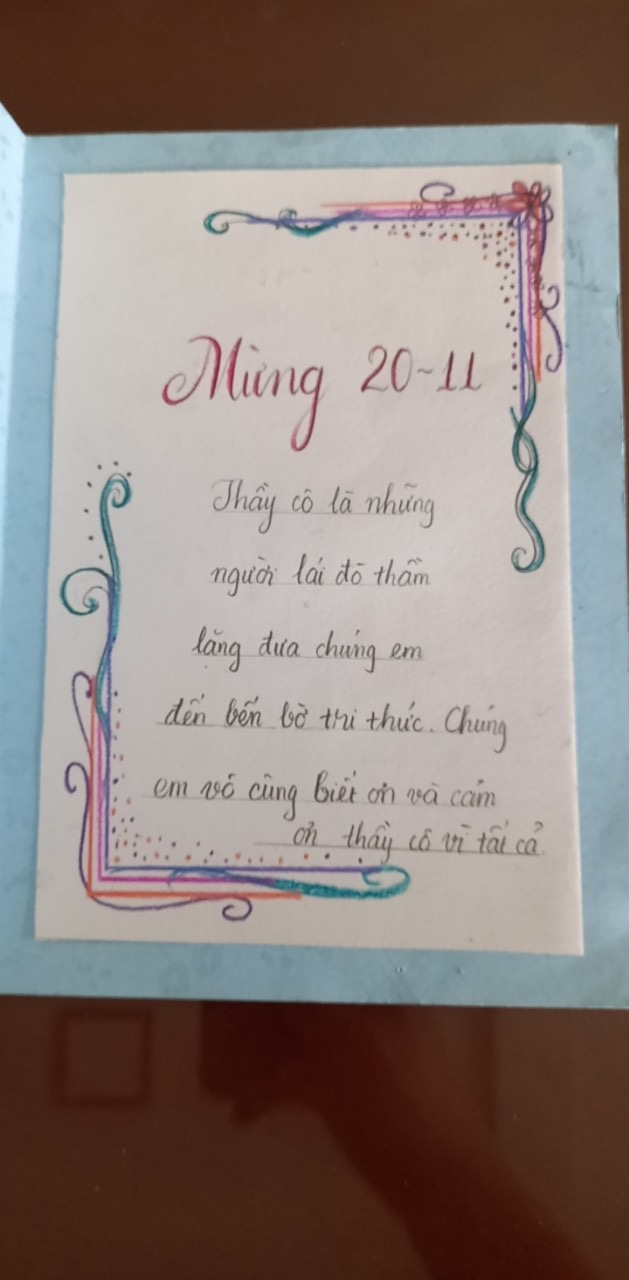 Mừng 20-11
Thầy cô là những
người lái đò thầm
lặng đưa chúng em
đến bến bờ tri thức. Chúng
em vô cùng biết ơn và cảm
ơn thầy cô vì tất cả.